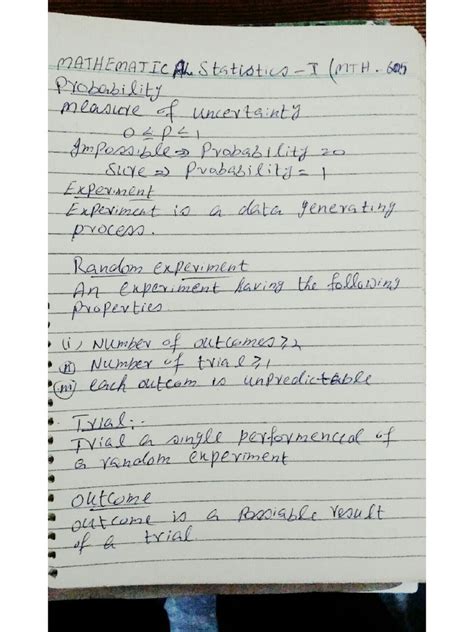 MATHEMATICAL Statistics - I (MTH - 605
Probability
measure of uncertainty
0 ≤ P ≤ 1
Impossible ⇒ Probability = 0
Sure ⇒ Probability = 1
Experiment
Experiment is a data generating
process.
Random experiment
An Experiment having the following
Properties.
(i) Number of outcomes ≥ 2
(ii) Number of trial ≥ 1
(iii) each outcom is unpredictable
Trial:-
Trial a single performenced of
a random experiment
Outcome
outcome is a Possiable result
of a trial